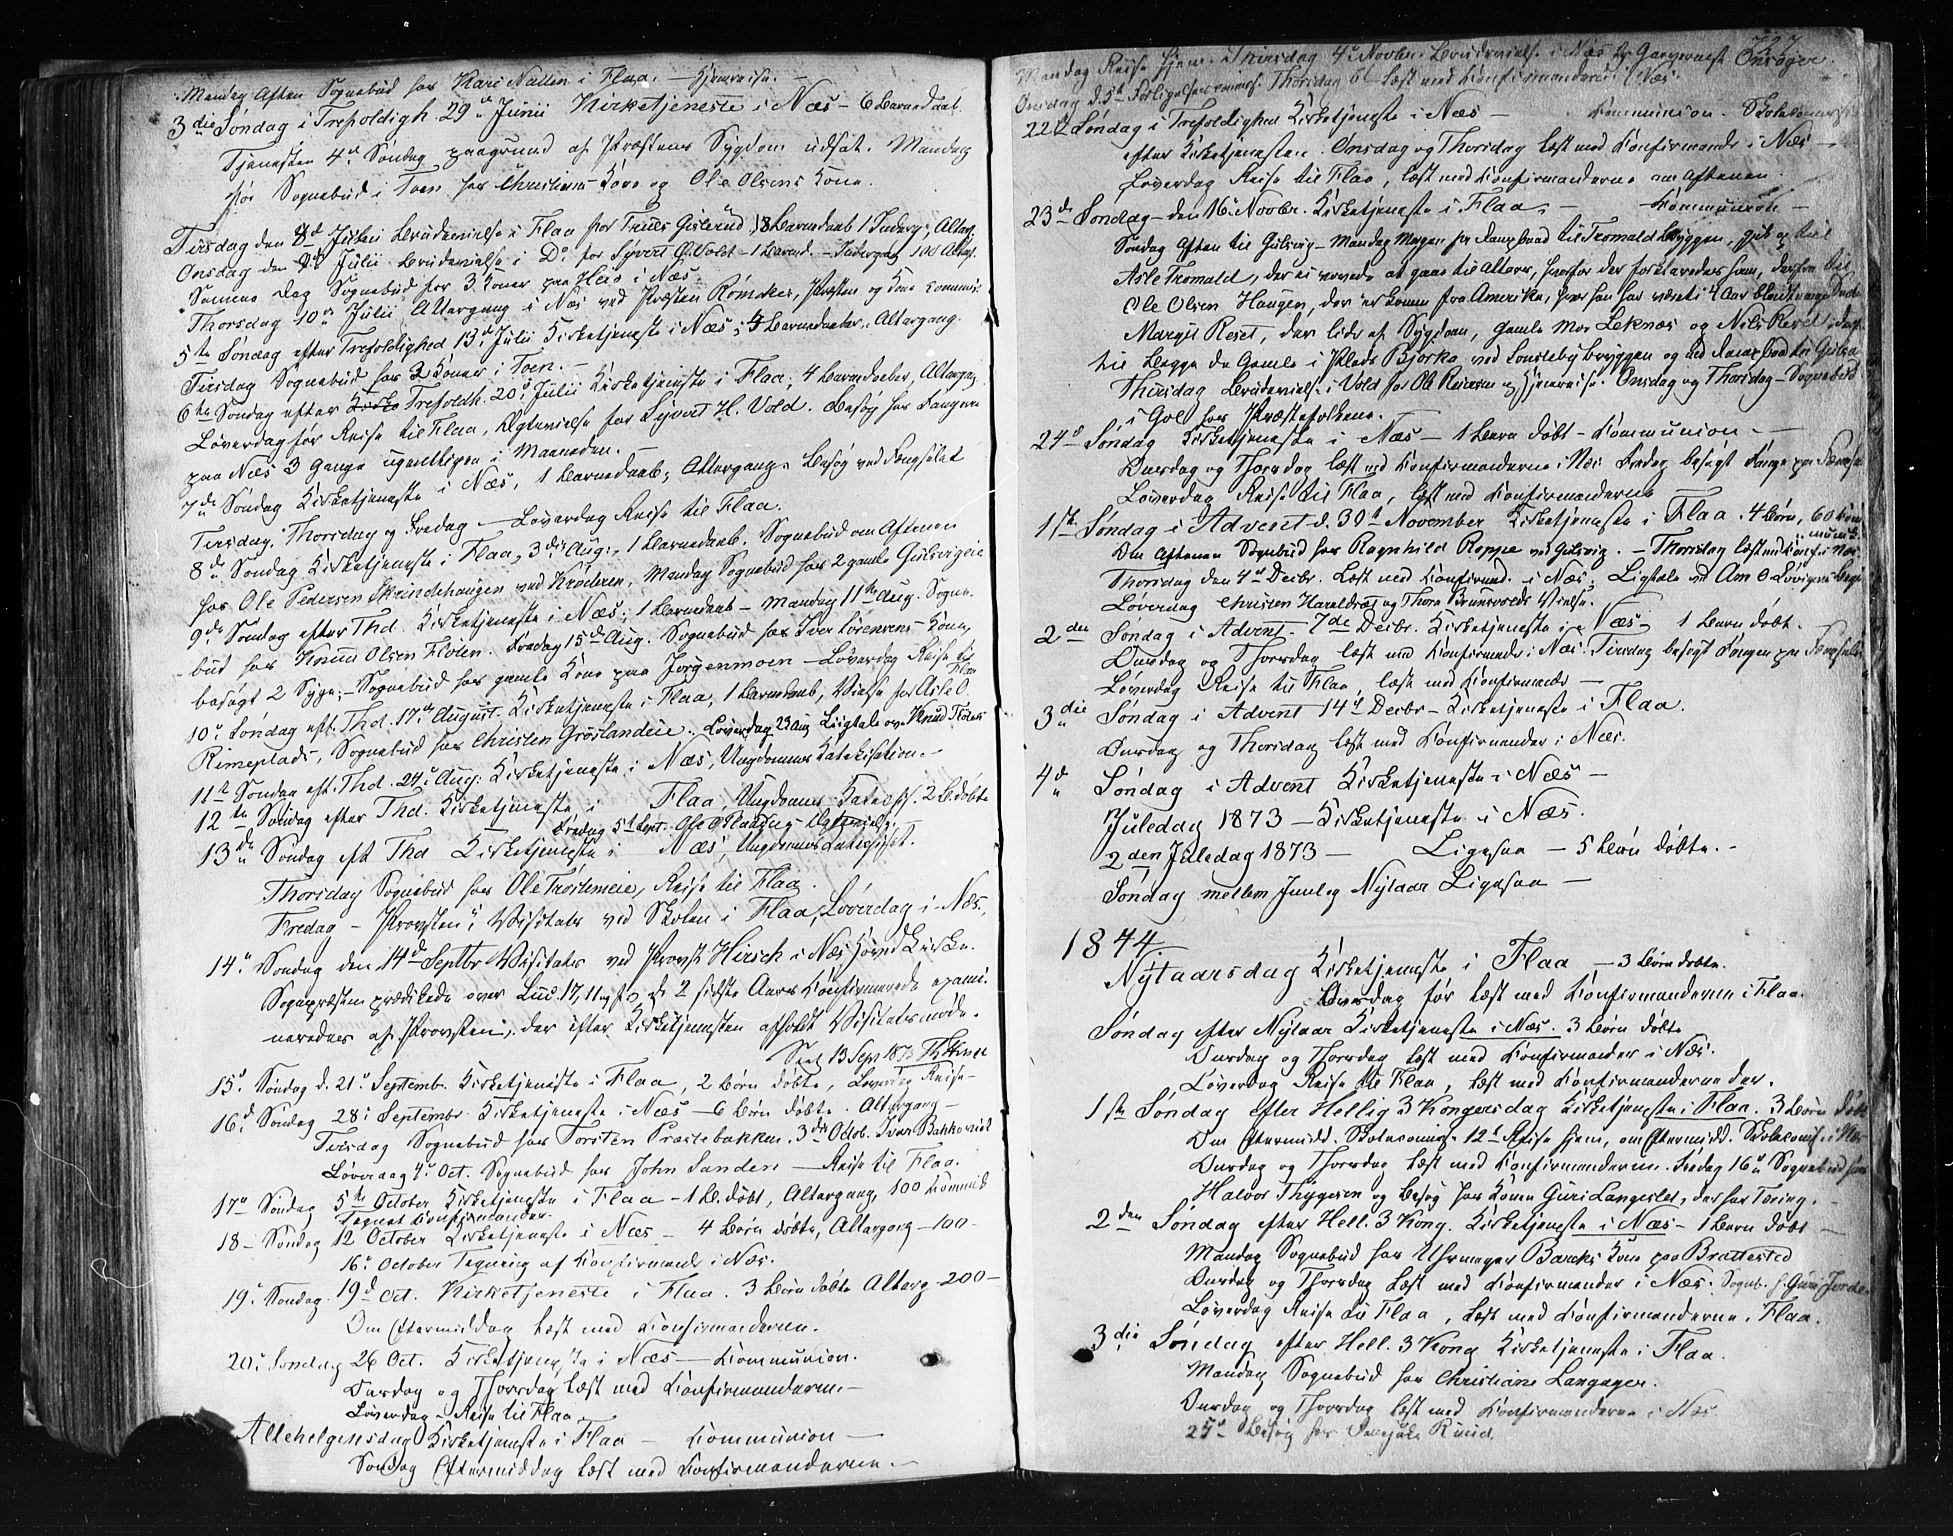 Mandag Aften Sognebud hos Kari Natten i Flaa. — Hjemreise. —
3die Søndag i Trefoldigh. 29d Junii Kirketjeneste i Næs — 6 Barnedaab.
Tjenesten 4d Søndag paagrund af Præstens Sygdom udsat. Mandag
før Sognebud i Toen hos Christians Kone og Ole Olsens Kone.
Tirsdag den 8d Julii Brudevielse i Flaa for Truls Gislerud, 8 Barnedaab 1 Altarg.
Onsdag den Julii Brudevielse i Do for Syvert G. Vold — 1 Barned. — 100 Altarg.
Samme Dag Sognebud for 3 Koner paa Heie i Næs.
Thorsdag 10d Julii Altergang i Næs ved Præsten Rømcke, Præsten og Kone
5te Søndag efter Trefoldighed 13d Julii Kirketjeneste i Næs, 4 Barnedaaber, Altergang.
Tirsdag Sognebud hos 2 Koner i Toen. —
6te Søndag efter Trefoldh. 20d Julii Kirketjeneste i Flaa, 4 Barnedaaber, Altergang
Løverdag før Reise til Flaa, Ægtevielse for Syvert H. Vold. Besøg hos Fangerne
paa Næs 3 Gange ugentligen i Maaneden. —
7de Søndag Kirketjeneste i Næs, 1 Barnedaab, Altergang, Besøg ved Fængselet
Tirsdag, Thorsdag og Fredag — Løverdag Reise til Flaa.
8de Søndag Kirketjeneste i Flaa, 3die Aug., 1 Barnedaab. Sognebud om Aftenen
hos Ole Pedersen Skrindehaugen ved Krøderen. Mandag Sognebud hos 2 gamle Gulsvigeie
9de Søndag efter Thd. Kirketjeneste i Næs, 1 Barnedaab — Mandag 11te Aug. Sogne-
bud hos Knud Olsen Floten. Fredag 15d Aug. Sognebud hos Iver Lorenzens Kone,
besøgt 2 Syge, — Sognebud hos gamle Kone paa Jørgenmoen — Løverdag Reise til Flaa
10d Søndag eft. Thd. 17d August. Kirketjeneste i Flaa, 1 Barnedaab, Vielse for Asle O.
Rimeplads, Sognebud hos Christen Grøslandeie. Løverdag 23 Aug Ligtale over Knud Floten
11te Søndag eft. Thd. 24d Aug. Kirketjeneste i Næs, Ungdommens Katekisation. —
12te Søndag efter Thd. Kirketjeneste i Flaa, Ungdommens Katekis. 2 B. døbte
Fredag 5d Sept. Ole Ægtevielse
13de Søndag eft Thd Kirketjeneste i Næs, Ungdommens Catechisat.
Thorsdag Sognebud hos Ole Trøstemeie, Reise til Flaa.
Fredag — Provsten's Visitats ved Skolen i Flaa, Løverdag i Næs.
14d Søndag den 14d Septbr Visitats ved Provst Hirsch i Næs Hoved Kirke.
Sognepræsten prædikede over Luc. 17, 11 de 2 sidste Aars Konfirmerede exami-
neredes af Provsten, der efter Kirketjenesten afholdt Visitatsmøde.
13 Sep 1873
15d Søndag d. 21d Septemb. Kirketjeneste i Flaa, 2 Børn døbte, Løverdag Reise —
16d Søndag 28d Septembr. Kirketjeneste i Næs — 6 Børn døbte. Altergang —
Tirsdag Sognebud hos Torsten Præstebakken. 3die Octob. Iver Bakke
Løverdag 4d Oct. Sognebud hos John Sanden — Reise til Flaa.
17d Søndag 5te October Kirketjeneste i Flaa — 1 B. døbt, Altergang, 100
Tegnet Confirmander.
18 — Søndag 12 October Kirketjeneste i Næs — 4 Børn døbte, Altergang — 100 —
16d October Tegning af Konfirmande i Næs.
19d Søndag 19d Oct. Kirketjeneste i Flaa. 3 Børn døbte Altarg — 200 —
Om Eftermiddag læst med Konfirmanderne.
20d Søndag 26 Oct. Kirketjeneste i Næs — Kommunion.
Onsdag og Thorsdag læst med Konfirmanderne —
Løverdag — Reise til Flaa
Allehelgensdag Kirketjeneste i Flaa — Kommunion —
Søndag Eftermiddag læst med Konfirmanderne. —
727
Mandag Reise hjem. Thirsdag 4d Novbr. Brudevielse i Næs for Onsager.
Onsdag d. 5d Forligelses. Thorsdag 6 læst med Konfirmanderne i Næs.
22d Søndag i Trefoldighed Kirketjeneste i Næs — Kommunion. Skolecomission
efter Kirketjenesten. Onsdag og Thorsdag læst med Konfirmande i Næs —
Løverdag Reise til Flaa, læst med Konfirmanderne om Aftenen.
23de Søndag — den 16d Novbr. Kirketjeneste i Flaa, — Kommunion —
Søndag Aften til Gulsvig — Mandag Morgen pr Dampbaad til Tromald Bryggen, gik op til
Asle Tromald, der ei vovede at gaae til Alters, hvorfor der forklaredes ham, derfra til
Ole Olsen Haugen, der er kommen fra Amerika, hvor han har været i 4 Aar
Margit Reset, der lider af Sygdom, gamle Mor Leknæs og Nils Reset,
til Begge de Gamle i Plads Bjørke ved Sonsteby bryggen og ved Dampbaad til Gulsv.
Thirsdag Brudevielse i Vold for Ole og Hjemreise. Onsdag og Thorsdag — Sognebud
i Gol hos Præstefolkene.
24d Søndag Kirketjeneste i Næs — 1 Barn døbt — Kommunion — —
Onsdag og Thorsdag læst med Konfirmanderne i Næs. Fredag besøgt Fange paa
Løverdag Reise til Flaa, læst med Konfirmanderne
1ste Søndag i Advent d. 30d November Kirketjeneste i Flaa. 4 Børn, 60
Om Aftenen Sognebud hos Ragnhild Roppe ved Gulsvig. — Thorsdag læst med Konf. i Næs.
Thorsdag den 4d Decbr. Læst med Konfirmand. i Næs. Ligtale ved
Løverdag Christen Haraldsets og Thora Brunsvolds Vielse.
2den Søndag i Advent. 7de Decbr. Kirketjeneste i Næs — 1 Barn døbt.
Onsdag og Thorsdag læst med Konfirmande i Næs. Tirsdag besøgt Fangen paa Fængselet
Løverdag Reise til Flaa, læst med Konfirmande —
3die Søndag i Advent 14d Decbr — Kirketjeneste i Flaa.
Onsdag og Thorsdag læst med Konfirmander i Næs.
4d Søndag i Advent Kirketjeneste i Næs —
Juledag 1873 — Kirketjeneste i Næs.
2den Juledag 1873 — Ligesaa — 5 Børn døbte. —
Søndag mellem Juul og Nytaar Ligesaa —
1844.
Nytaarsdag Kirketjeneste i Flaa — 3 Børn døbte.
Løverdag før læst med Konfirmanderne i Flaa.
Søndag efter Nytaar Kirketjeneste i Næs. 3 Børn døbte
Onsdag og Thorsdag læst med Konfirmander i Næs.
Løverdag Reise til Flaa, læst med Konfirmanderne der.
1ste Søndag efter Hellig 3 Kongersdag Kirketjeneste i Flaa. 3 Børn døbt
Om Eftermidd. Skolecomis. 12d Reise hjem, om Eftermidd. Skolecomis. i Næs
Onsdag og Thorsdag læst med Konfirmanderne. Fredag 16d Sognebud hos
Halvor Thygesen og Besøg hos Konen Guri Langeslet, der har Tæring. —
2den Søndag efter Hell. 3 Kong. Kirketjeneste i Næs — 1 Barn døbt —
Mandag Sognebud hos Uhrmager Bancks Kone paa Brattested
Onsdag og Thorsdag læst med Konfirmander i Næs. Sogneb. h. Guri Jorde
Løverdag Reise til Flaa, læst med Konfirmanderne i Flaa.
3die Søndag efter Hell. 3 Kong Kirketjeneste i Flaa.
Mandag Sognebud hos Christiane Langager.
Onsdag og Thorsdag læst med Konfirmanderne i Næs
25d Besøg hos Ruud.